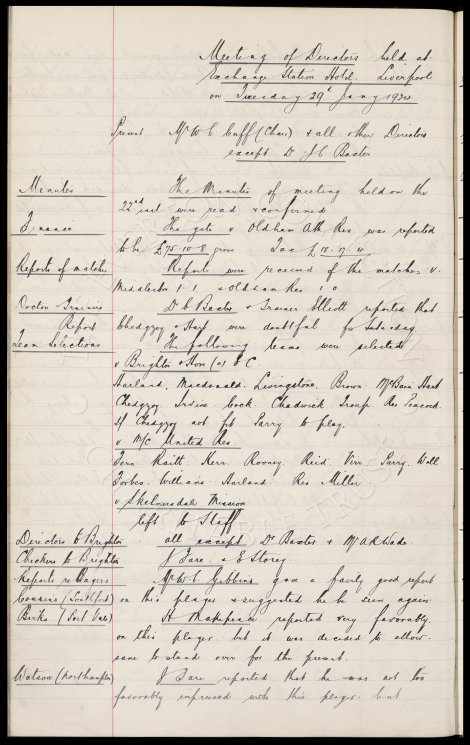 Meeting of Directors held at
Exchange Station Hotel. Liverpool
on Tuesday 29th Jany 1924
Present Mr W C Cuff (Chair) & all other Directors
except Dr J C Baxter
Minutes The Minutes of meeting held on the
22nd inst were read & confirmed
Finance The gate v Oldham Ath Res was reported
to be £75-10-8 gross Tax £18-17-4
Reports of matches Reports were received of the matches v.
Middlesbro 1-1 & Oldham Res 1 0
Doctor & Trainers Dr C Baxter & Trainer Elliott reported that
Report Chedgzoy & Hart were doubtful for Saturday
Team Selections The following teams were selected
v Brighton & Hove (a) E C.
Harland, Macdonald. Livingstone, Brown McBain Hart
Chedgzoy. Irvine Cock Chadwick Troup Res Peacock.
If Chedgzoy not fit Parry to play.
v M/C United Res
Fern Raitt. Kerr. Rooney Reid Virr. Parry. Wall
Forbes. Williams. Harland Res Miller
v Skelmersdale Mission
left to Staff
Directors to Brighton all except Dr Baxter & Mr A R Wade.
Checkers to Brighton J Fare. & E Storey.
Reports re Players Mr W C Gibbins gave a fairly good report
Cousins (Southport) on this player & suggested he be seen again
Birks (Port Vale) H Makepeace reported very favorably
on this player. but it was decided to allow
same to stand over for the present.
Watson (Northampton) J Fare reported that he was not too
favorably impressed with this player. but